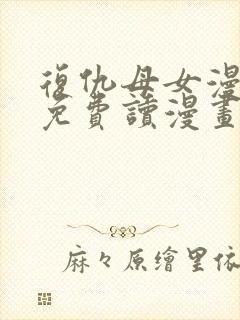 復仇母女漫
免費讀漫畫
麻々原繪里依